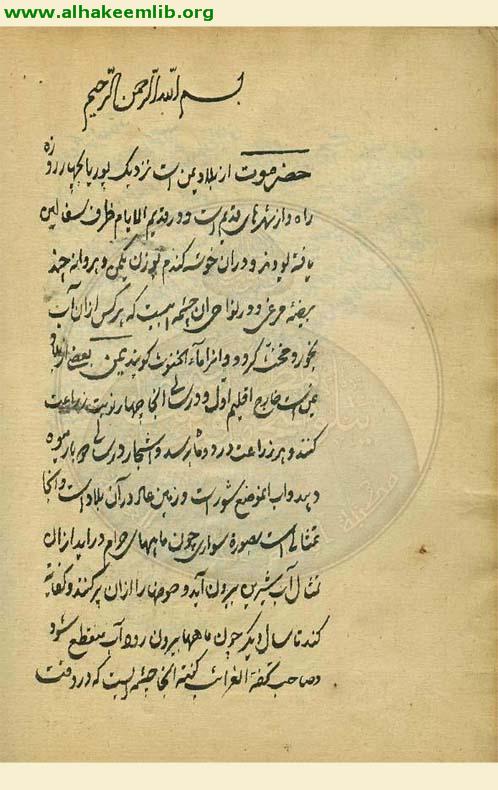 www.alhakeemlib.org
بسم الله الرحمن الرحیم
حضرموت از بلاد یمن است نزدیک بدریا بچهار روزه
راه و از شهرهای قدیم است و در قدیم الایام ظرف سفالین
یافته بودند و در آن خوشه کندم بوزن یکمن و هر دانه چند
بیضه مرغی و در نواحی آن چشمه ایست که هر کس از آن آب
بخورد مخنث کردد و آنرا ماء الخنوثت کویند یمن بعضی از بلاد
است خارج اقلیم اول و در سالی آنجا چهار نوبت زراعت
کنند و هر زراعت در دو ماه رسد و اشجار در سالی دو بار میوه
دهد و آب الموضع شور است و زمین عاد در آن بلاد است و آنجا
تمثالی است بصورة سواری چون ماههای حرام در آید از آن
تمثال آب شیرین بیرون آید و حوضها را از آن پر کنند و کفایة
کند تا سال دیکر چون ماهها بیرون رود آب منقطع شود
و صاحب تحفة الغرائب کفته آنجا چشمه ایست که در وقت